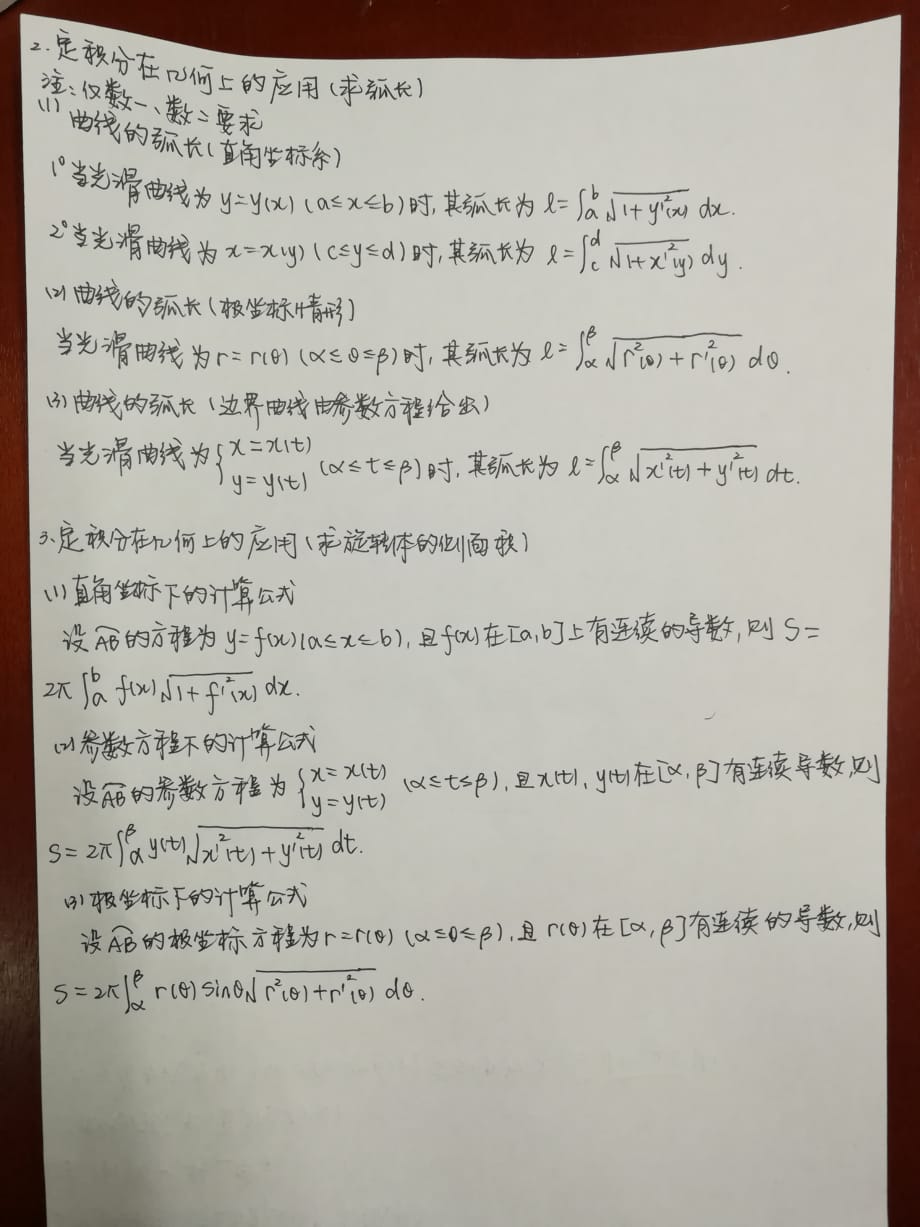 2. 定积分在几何上的应用(求弧长)
注:仅数一、数二要求
(1) 曲线的弧长(直角坐标系)
1° 当光滑曲线为 y=y(x) (a≤x≤b)时,其弧长为 l=∫_a^b √(1+y'²(x)) dx.
2° 当光滑曲线为 x=x(y) (c≤y≤d)时,其弧长为 l=∫_c^d √(1+x'²(y)) dy.
(2) 曲线的弧长(极坐标情形)
当光滑曲线为 r=r(θ) (α≤θ≤β)时,其弧长为 l=∫_α^β √(r²(θ)+r'²(θ)) dθ.
(3) 曲线的弧长(边界曲线由参数方程给出)
当光滑曲线为 {x=x(t) y=y(t) (α≤t≤β)时,其弧长为 l=∫_α^β √(x'²(t)+y'²(t)) dt.
3. 定积分在几何上的应用(求旋转体的侧面积)
(1) 直角坐标下的计算公式
设 AB⌢ 的方程为 y=f(x)(a≤x≤b),且f(x)在[a,b]上有连续的导数,则 S=
2π∫_a^b f(x)√(1+f'²(x)) dx.
(2) 参数方程下的计算公式
设 AB⌢ 的参数方程为 {x=x(t) y=y(t) (α≤t≤β),且x(t), y(t)在[α,β]有连续导数,则
S=2π∫_α^β y(t)√(x'²(t)+y'²(t)) dt.
(3) 极坐标下的计算公式
设 AB⌢ 的极坐标方程为 r=r(θ) (α≤θ≤β),且 r(θ)在[α,β]有连续的导数,则
S=2π∫_α^β r(θ)sinθ√(r²(θ)+r'²(θ)) dθ.